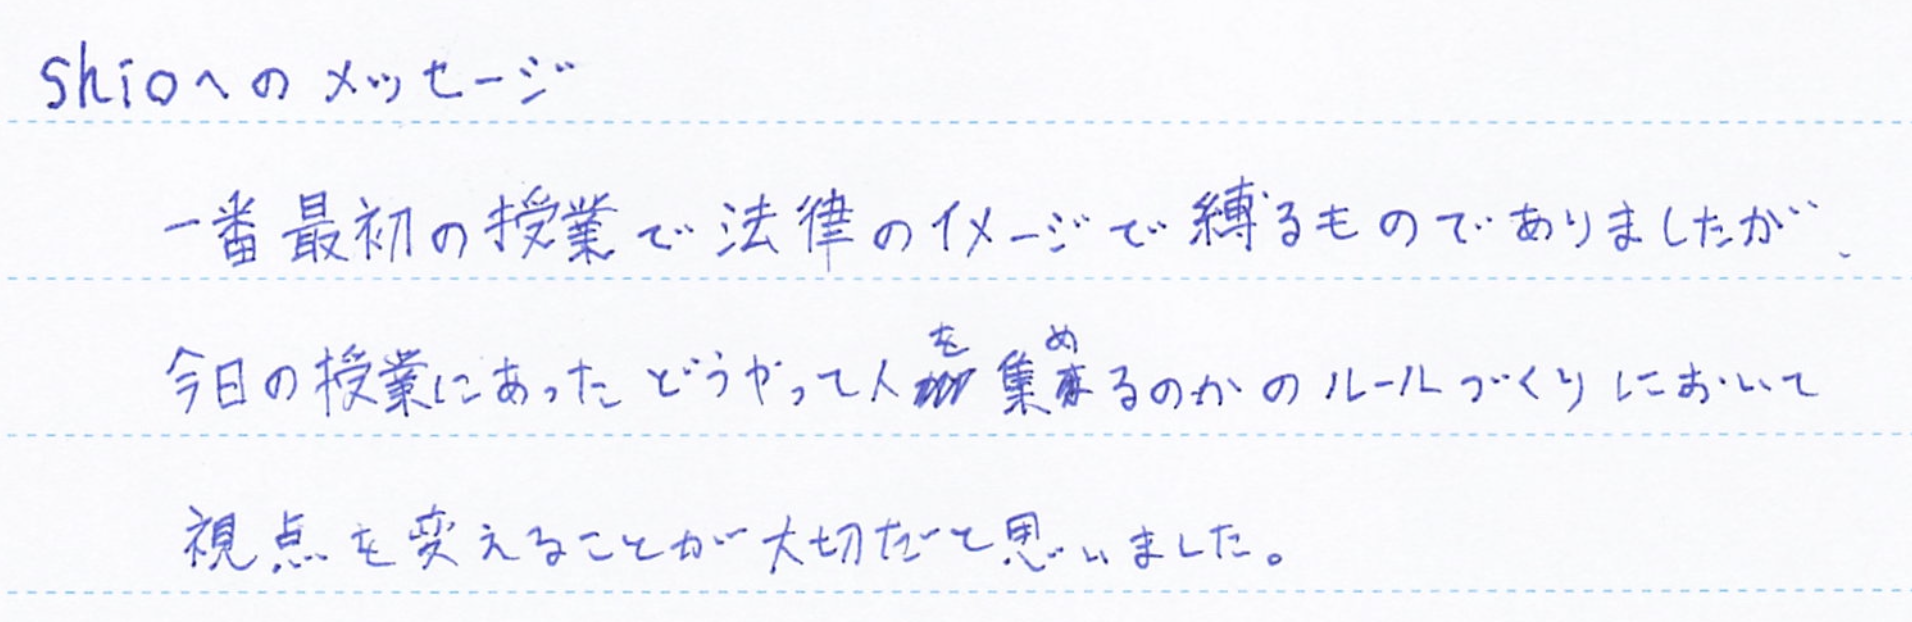 shioへのメッセージ
一番最初の授業で法律のイメージで縛るものでありましたが、
今日の授業にあったどうやって人を集めるのかのルールづくりにおいて
視点を変えることが大切だと思いました。